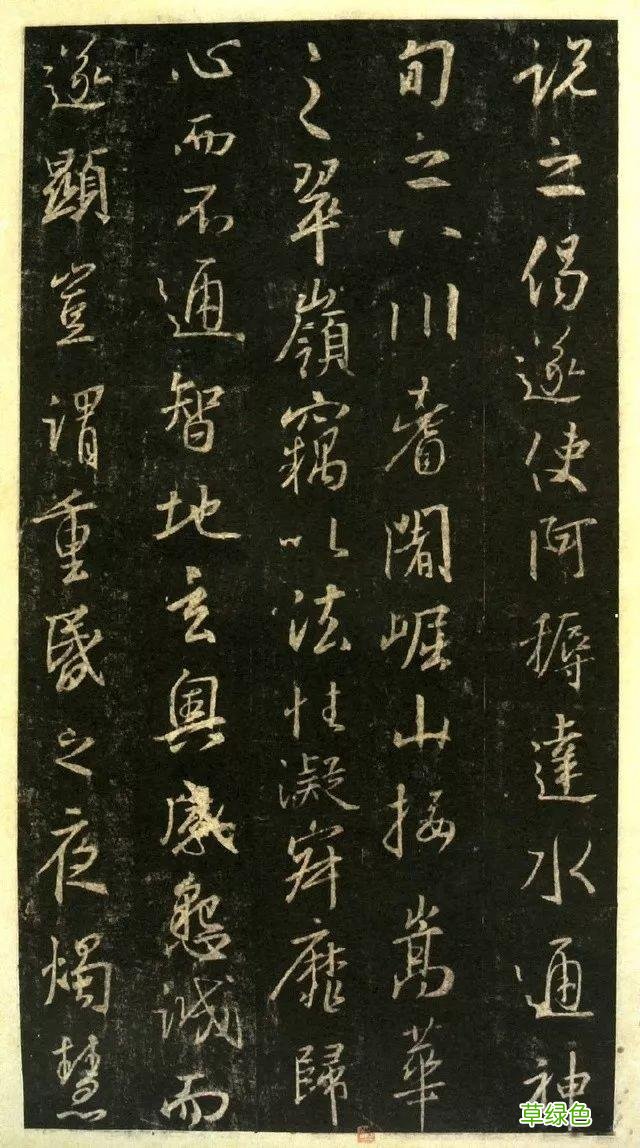 說之偈遂使阿耨達水通神
甸之八川耆闍崛山接嵩華
之翠嶺竊以法性凝寂靡歸
心而不通智地玄奧感懇誠而
遂顯豈謂重昏之夜燭慧
草绿色